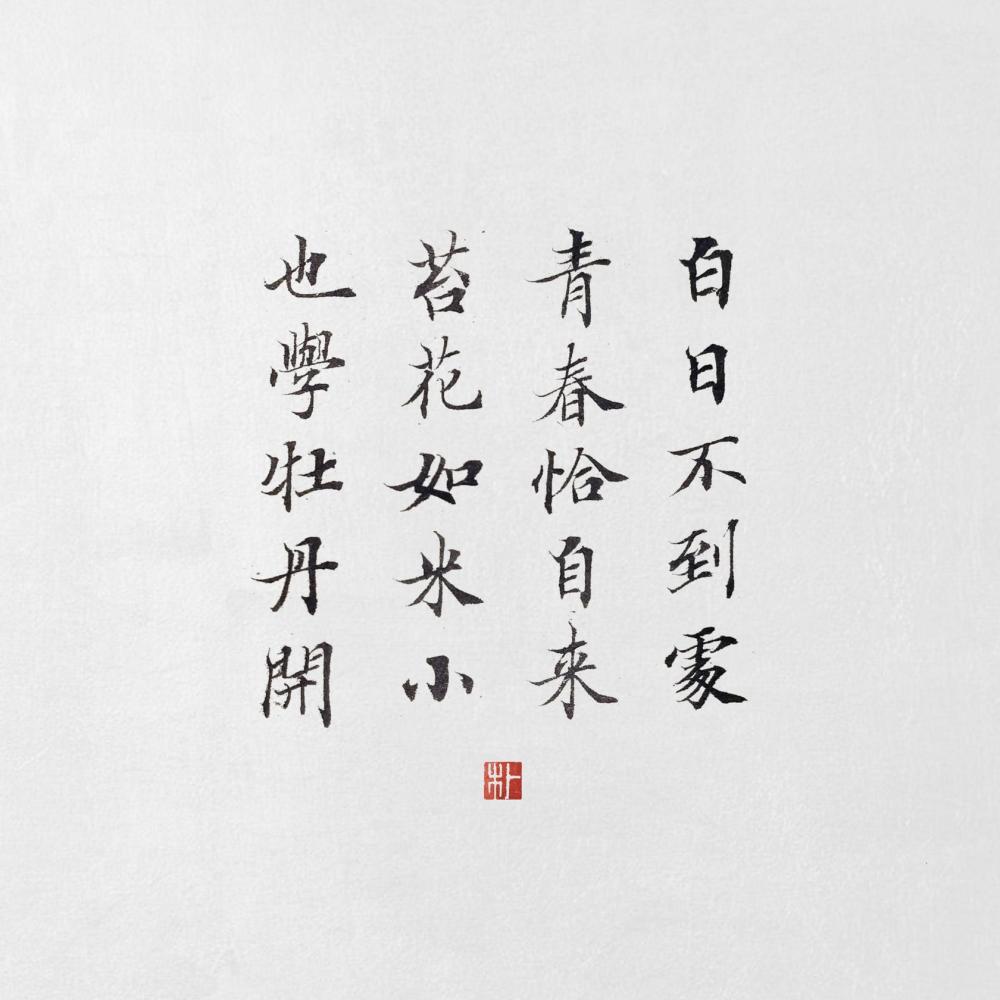 白日不到處
青春恰自来
苔花如米小
也學牡丹開
朴